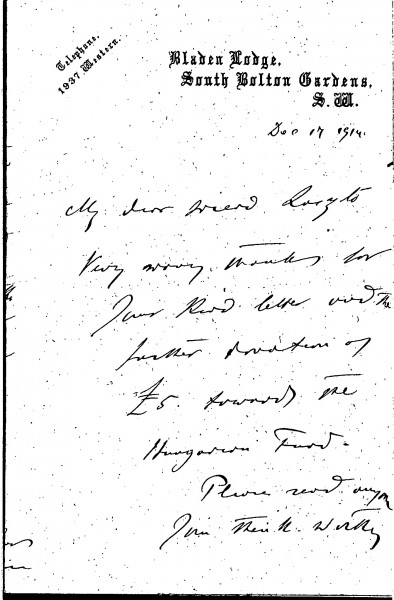 Telephone.
1937 Western.
Bladen Lodge.
South Bolton Gardens.
S.W.
Dec 17 1914.
My dear friend
Very many thanks for
your kind letter and the
further donation of
£5. towards the
Hungarian Fund.
Please send anyone
you think worthy